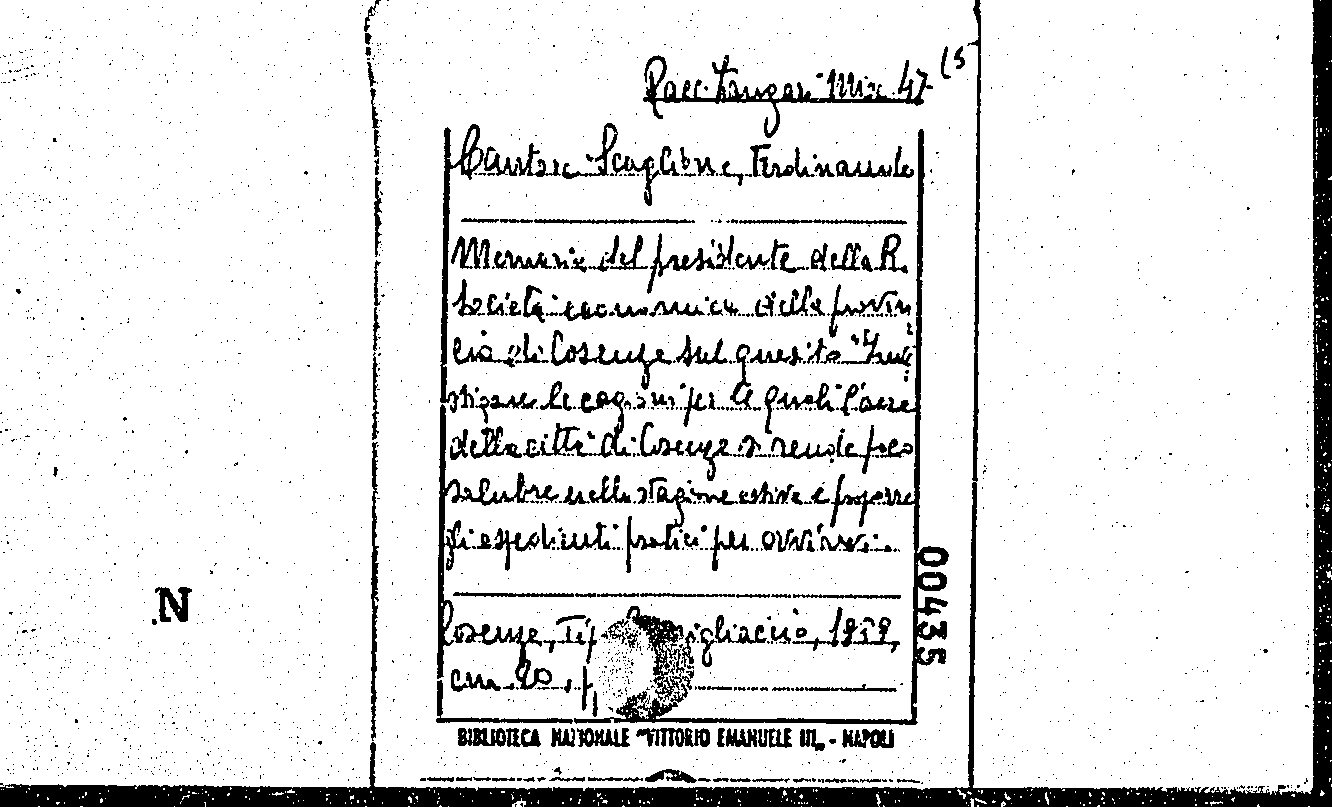 Racc. Zangari Mix. 47 (5
Cantore Scaglione, Ferdinando
Memoria del presidente della R.
Società economica della provin
cia di Cosenza sul quesito "Inve
stigare le cagioni per le quali l'aere
della città di Cosenza si rende poco
salubre nella stagione estiva e proporre
gli espedienti pratici per ovviarvi.
Cosenza, Tip. Migliaccio, 1859,
cm. 20, p.
BIBLIOTECA NAZIONALE "VITTORIO EMANUELE III„ - NAPOLI
00435
N